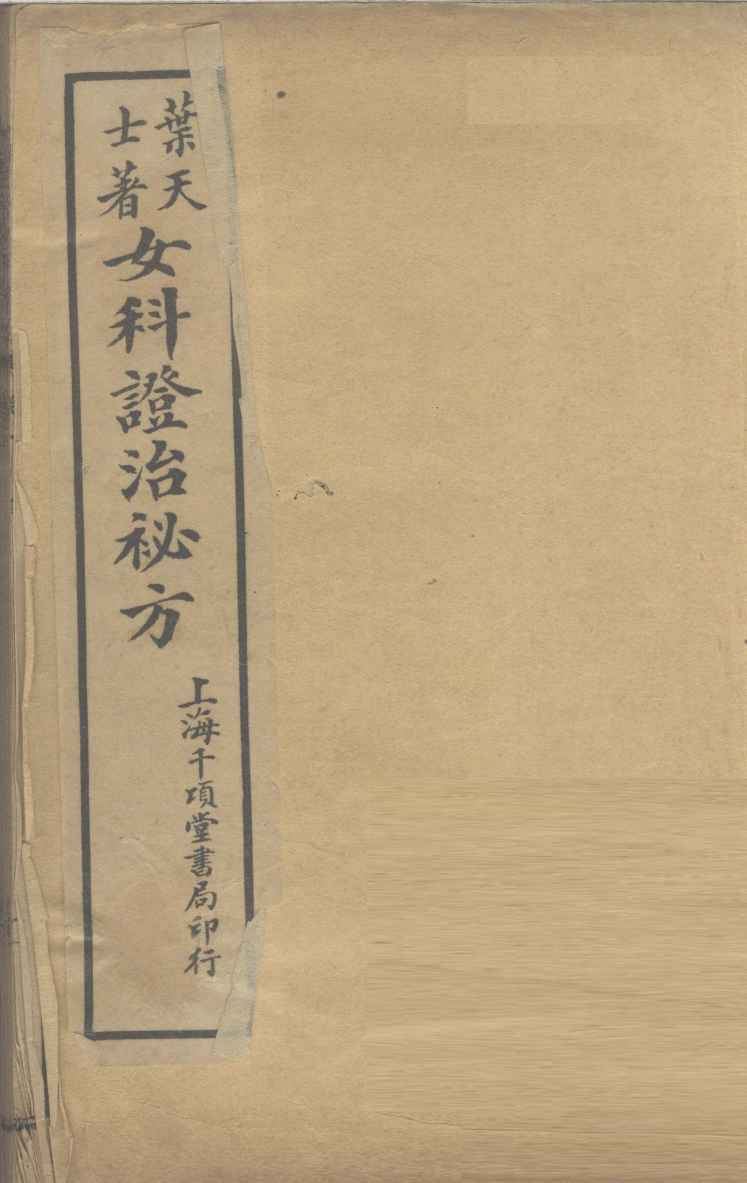 葉天
士著
女科證治祕方
上海千頃堂書局印行